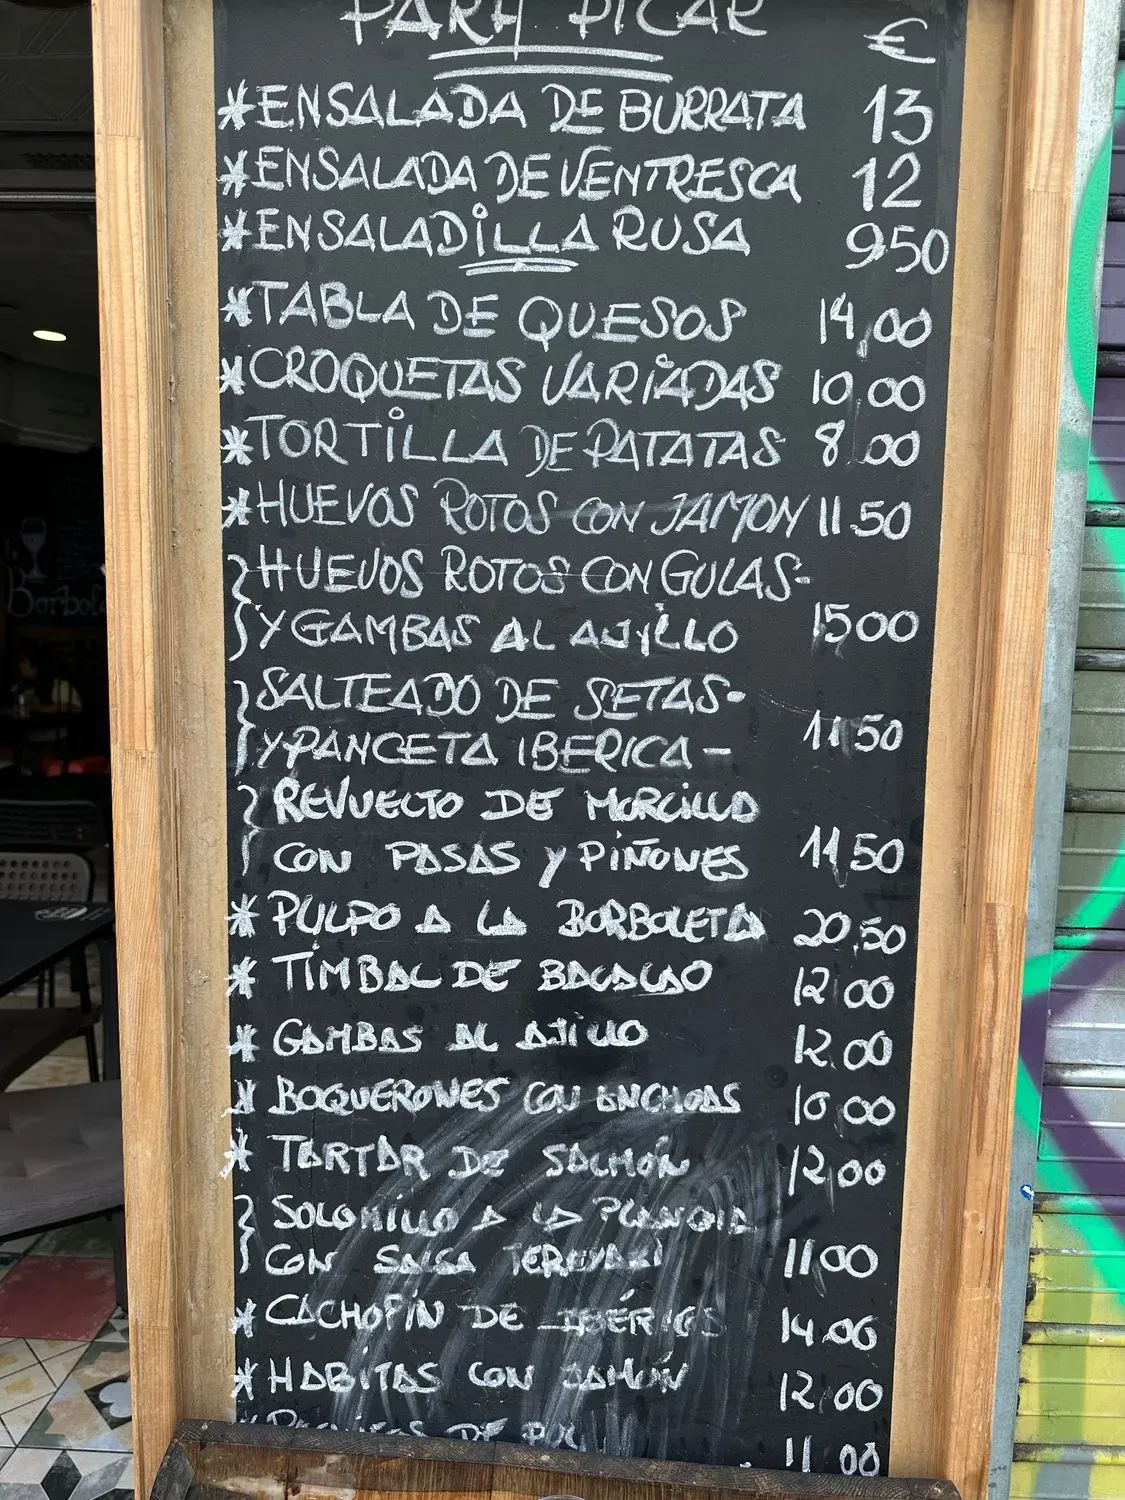 PARA PICAR €
*ENSALADA DE BURRATA 13
*ENSALADA DE VENTRESCA 12
*ENSALADILLA RUSA 950
*TABLA DE QUESOS 14,00
*CROQUETAS VARIADAS 10,00
*TORTILLA DE PATATAS 8,00
*HUEVOS ROTOS CON JAMON 11.50
HUEVOS ROTOS CON GULAS-
Y GAMBAS AL AJILLO 1500
SALTEADO DE SETAS-
Y PANCETA IBERICA - 11.50
REVUELTO DE MORCILLA
CON PASAS Y PIÑONES 11,50
*PULPO A LA BORBOLETA 20,50
*TIMBAL DE BACALAO 12,00
*GAMBAS AL AJILLO 12.00
*BOQUERONES CON ANCHOAS 10,00
*TARTAR DE SALMÓN 12,00
SOLOMILLO A LA PLANCHA
CON SALSA TERIYAKI 11,00
*CACHOPÍN DE IBÉRICO 14,00
*HABITAS CON JAMÓN 12,00
DE 11,00